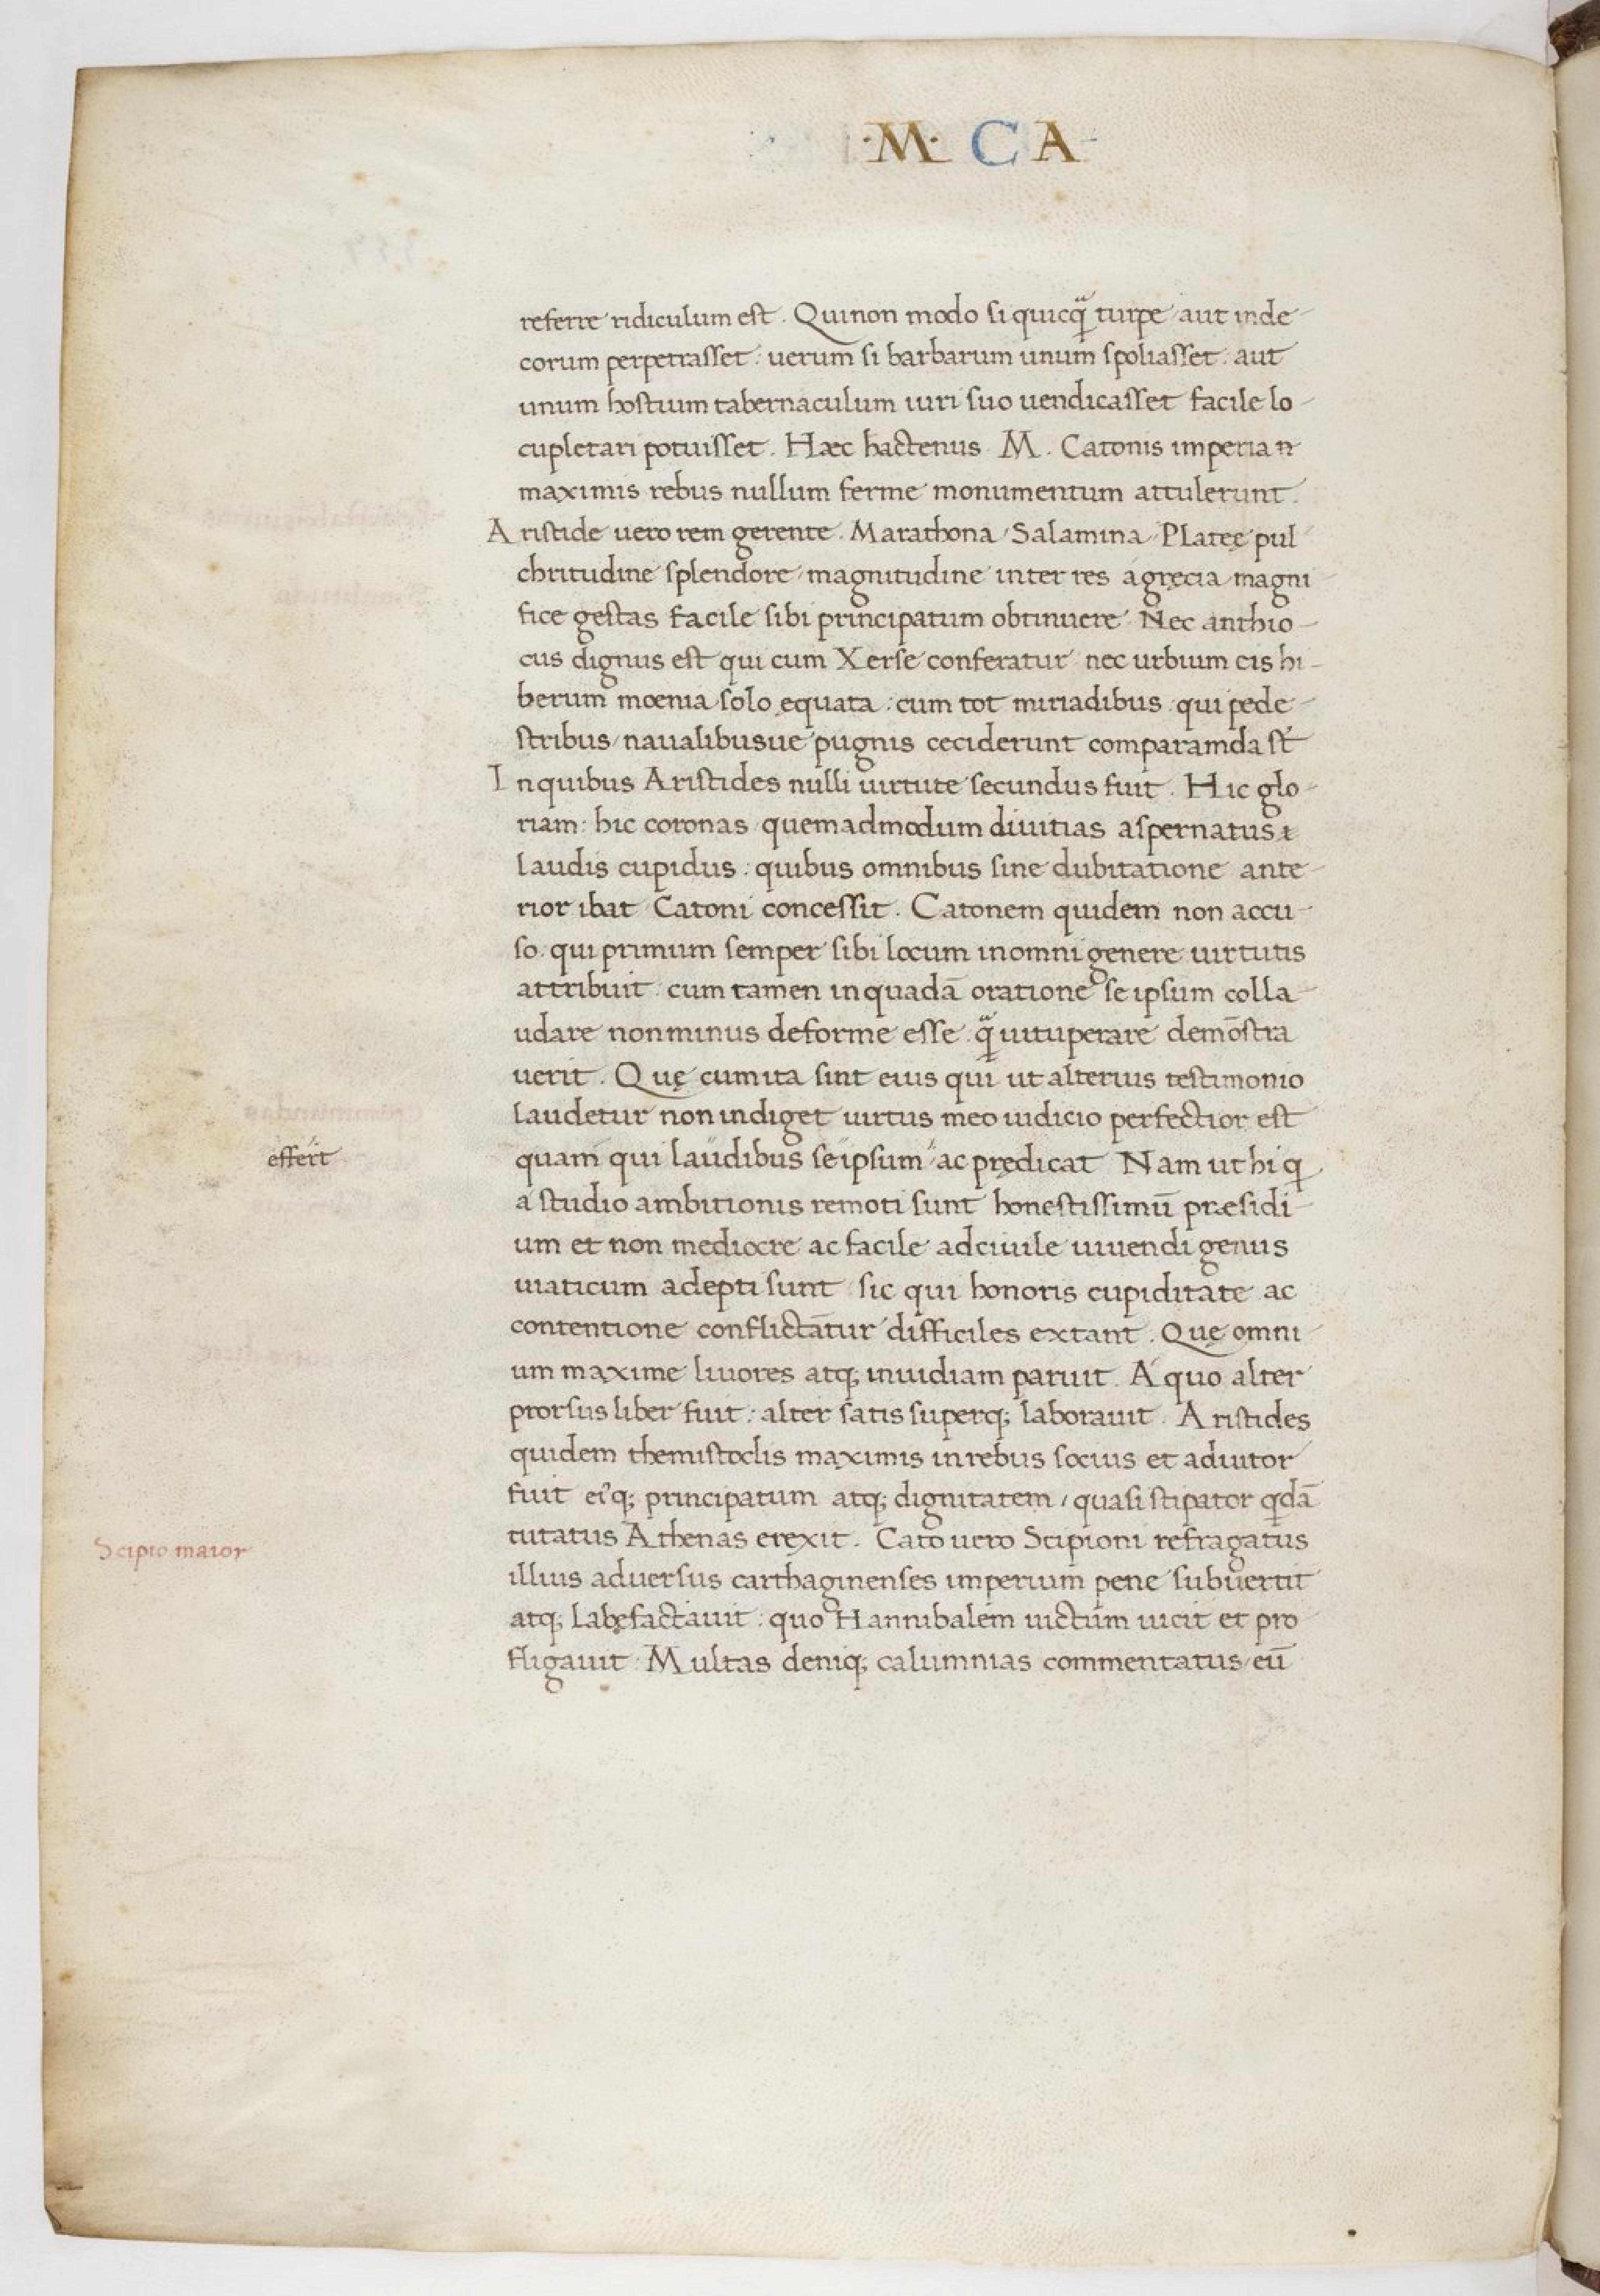 ·M· C A
referre ridiculum est. Qui non modo si quicq̃ turpe aut inde-
corum perpetrasset: uerum si barbarum unum spoliasset: aut
unum hostium tabernaculum iuri suo uendicasset facile lo-
cupletari potuisset. Hæc hactenus M. Catonis imperia n̄
maximis rebus nullum ferme monumentum attulerunt.
Aristide uero rem gerente. Marathona, Salamina, Plateę pul
chritudine splendore, magnitudine inter res a gręcia magni-
fice gestas facile sibi principatum obtinuere. Nec anthio-
cus dignus est qui cum Xerse conferatur nec urbium cis hi-
berum moenia solo ęquata: cum tot miriadibus qui pede-
stribus, naualibusue pugnis ceciderunt comparamda st̄
In quibus Aristides nulli uirtute secundus fuit. Hic glo-
riam: hic coronas quemadmodum diuitias aspernatus ē
laudis cupidus: quibus omnibus sine dubitatione ante-
rior ibat Catoni concessit. Catonem quidem non accu-
so. qui primum semper sibi locum in omni genere uirtutis
attribuit: cum tamen in quadā oratione se ipsum colla-
udare non minus deforme esse q̃ uituperare demōstra
uerit. Quę cum ita sint eius qui ut alterius testimonio
laudetur non indiget uirtus meo iudicio perfectior est
effert
quam qui laudibus se ipsum ̎ ac prędicat Nam ut hi q
a studio ambitionis remoti sunt honestissimū præsidi-
um et non mediocre ac facile ad ciuile uiuendi genus
uiaticum adepti sunt sic qui honoris cupiditate ac
contentione conflictātur difficiles extant. Quę omni-
um maxime liuores atq; inuidiam paruit. A quo alter
prorsus liber fuit: alter satis superq; laborauit. Aristides
quidem themistoclis maximis in rebus socius et adiutor
fuit eiq; principatum atq; dignitatem, quasi stipator qdā
tutatus Athenas erexit. Cato uero Scipioni refragatus
Scipio maior
illius aduersus carthaginenses imperium pene subuertit
atq; labęfactauit: quo Hannibalem uictum uicit et pro-
fligauit. Multas deniq; calumnias commentatus, eū